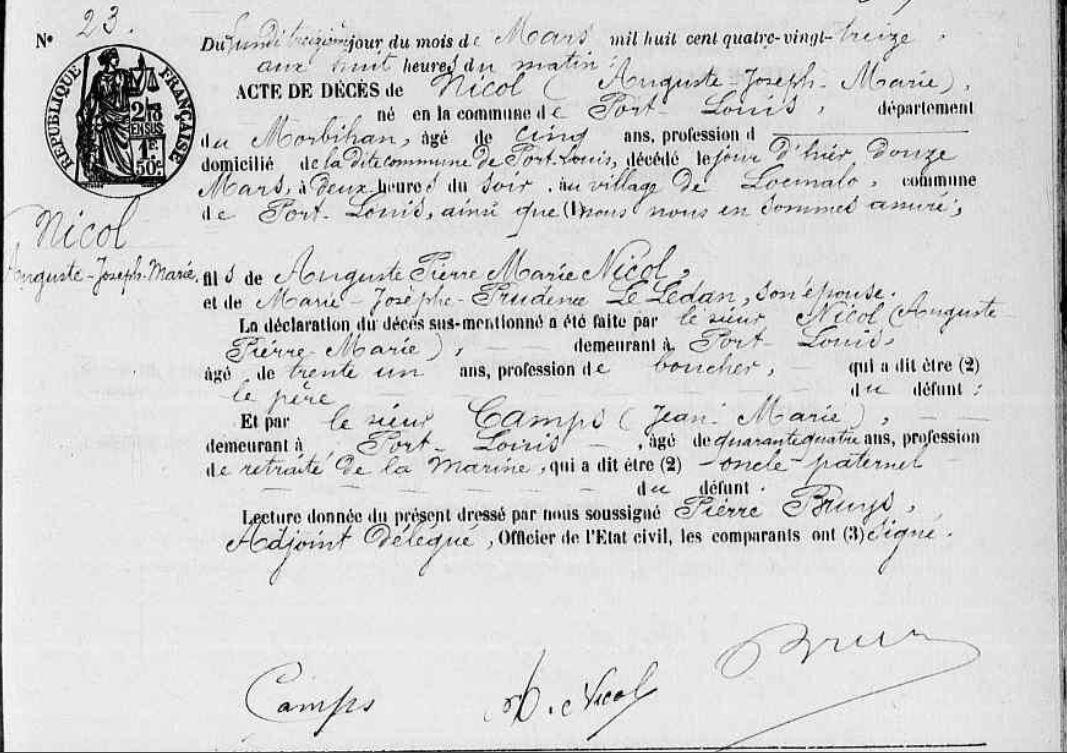 Nº 23.
Du lundi treizième jour du mois de Mars mil huit cent quatre-vingt-treize,
aux huit heures du matin.
ACTE DE DÉCÈS de Nicol (Auguste-Joseph-Marie),
né en la commune de Port-Louis, département
du Morbihan, âgé de cinq ans, profession d
domicilié de la dite commune de Port-Louis, décédé le jour d'hier douze
Mars, à deux heures du soir, au village de Locmalo, commune
de Port-Louis, ainsi que (1) nous nous en sommes assuré;
RÉPUBLIQUE FRANÇAISE
2/10
EN SUS
1F.
50c.
Nicol
Auguste-Joseph-Marie.
fils de Auguste Pierre Marie Nicol,
et de Marie-Josèphe-Prudence Le Ledan, son épouse.
La déclaration du décès sus-mentionné a été faite par le sieur Nicol (Auguste
Pierre Marie), demeurant à Port-Louis,
âgé de trente un ans, profession de boucher, qui a dit être (2)
le père du défunt;
Et par le sieur Camps (Jean-Marie),
demeurant à Port-Louis, âgé de quarante quatre ans, profession
de retraité de la Marine, qui a dit être (2) oncle paternel
du défunt.
Lecture donnée du présent dressé par nous soussigné Pierre Bruys,
Adjoint Délégué, Officier de l'Etat civil, les comparants ont (3) signé.
Camps Nicol